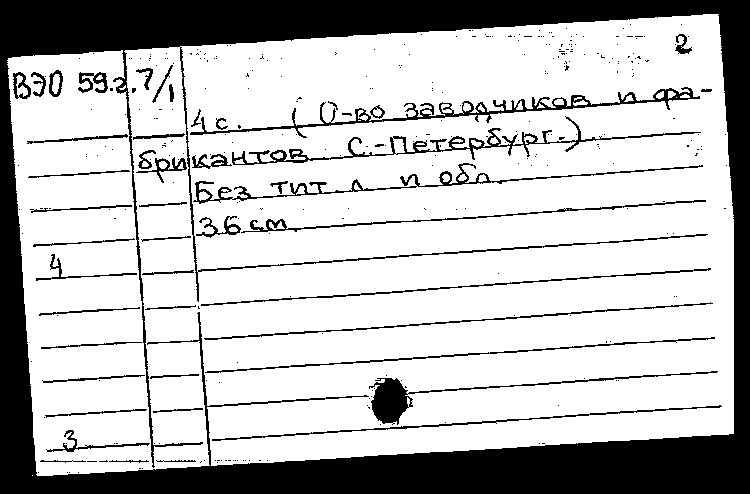 2
ВЭО 59.г.7/1
4с. (О-во заводчиков и фа-
брикантов С.-Петербург.).
Без тит. л. и обл.
36 см.
4
3